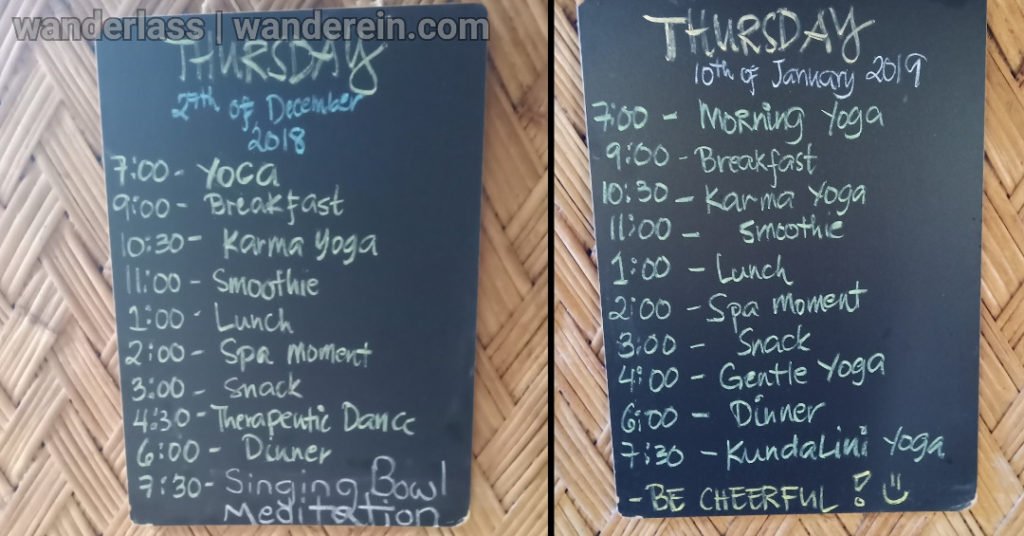 wanderlass | wanderein.com
THURSDAY
27th of December
2018
7:00 - YOGA
9:00 - Breakfast
10:30 - Karma Yoga
11:00 - Smoothie
1:00 - Lunch
2:00 - Spa Moment
3:00 - Snack
4:30 - Therapeutic Dance
6:00 - Dinner
7:30 - Singing Bowl
Meditation
THURSDAY
10th of January 2019
7:00 - Morning Yoga
9:00 - Breakfast
10:30 - Karma Yoga
11:00 - Smoothie
1:00 - Lunch
2:00 - Spa Moment
3:00 - Snack
4:00 - Gentle Yoga
6:00 - Dinner
7:30 - KundaLini Yoga
- BE CHEERFUL!